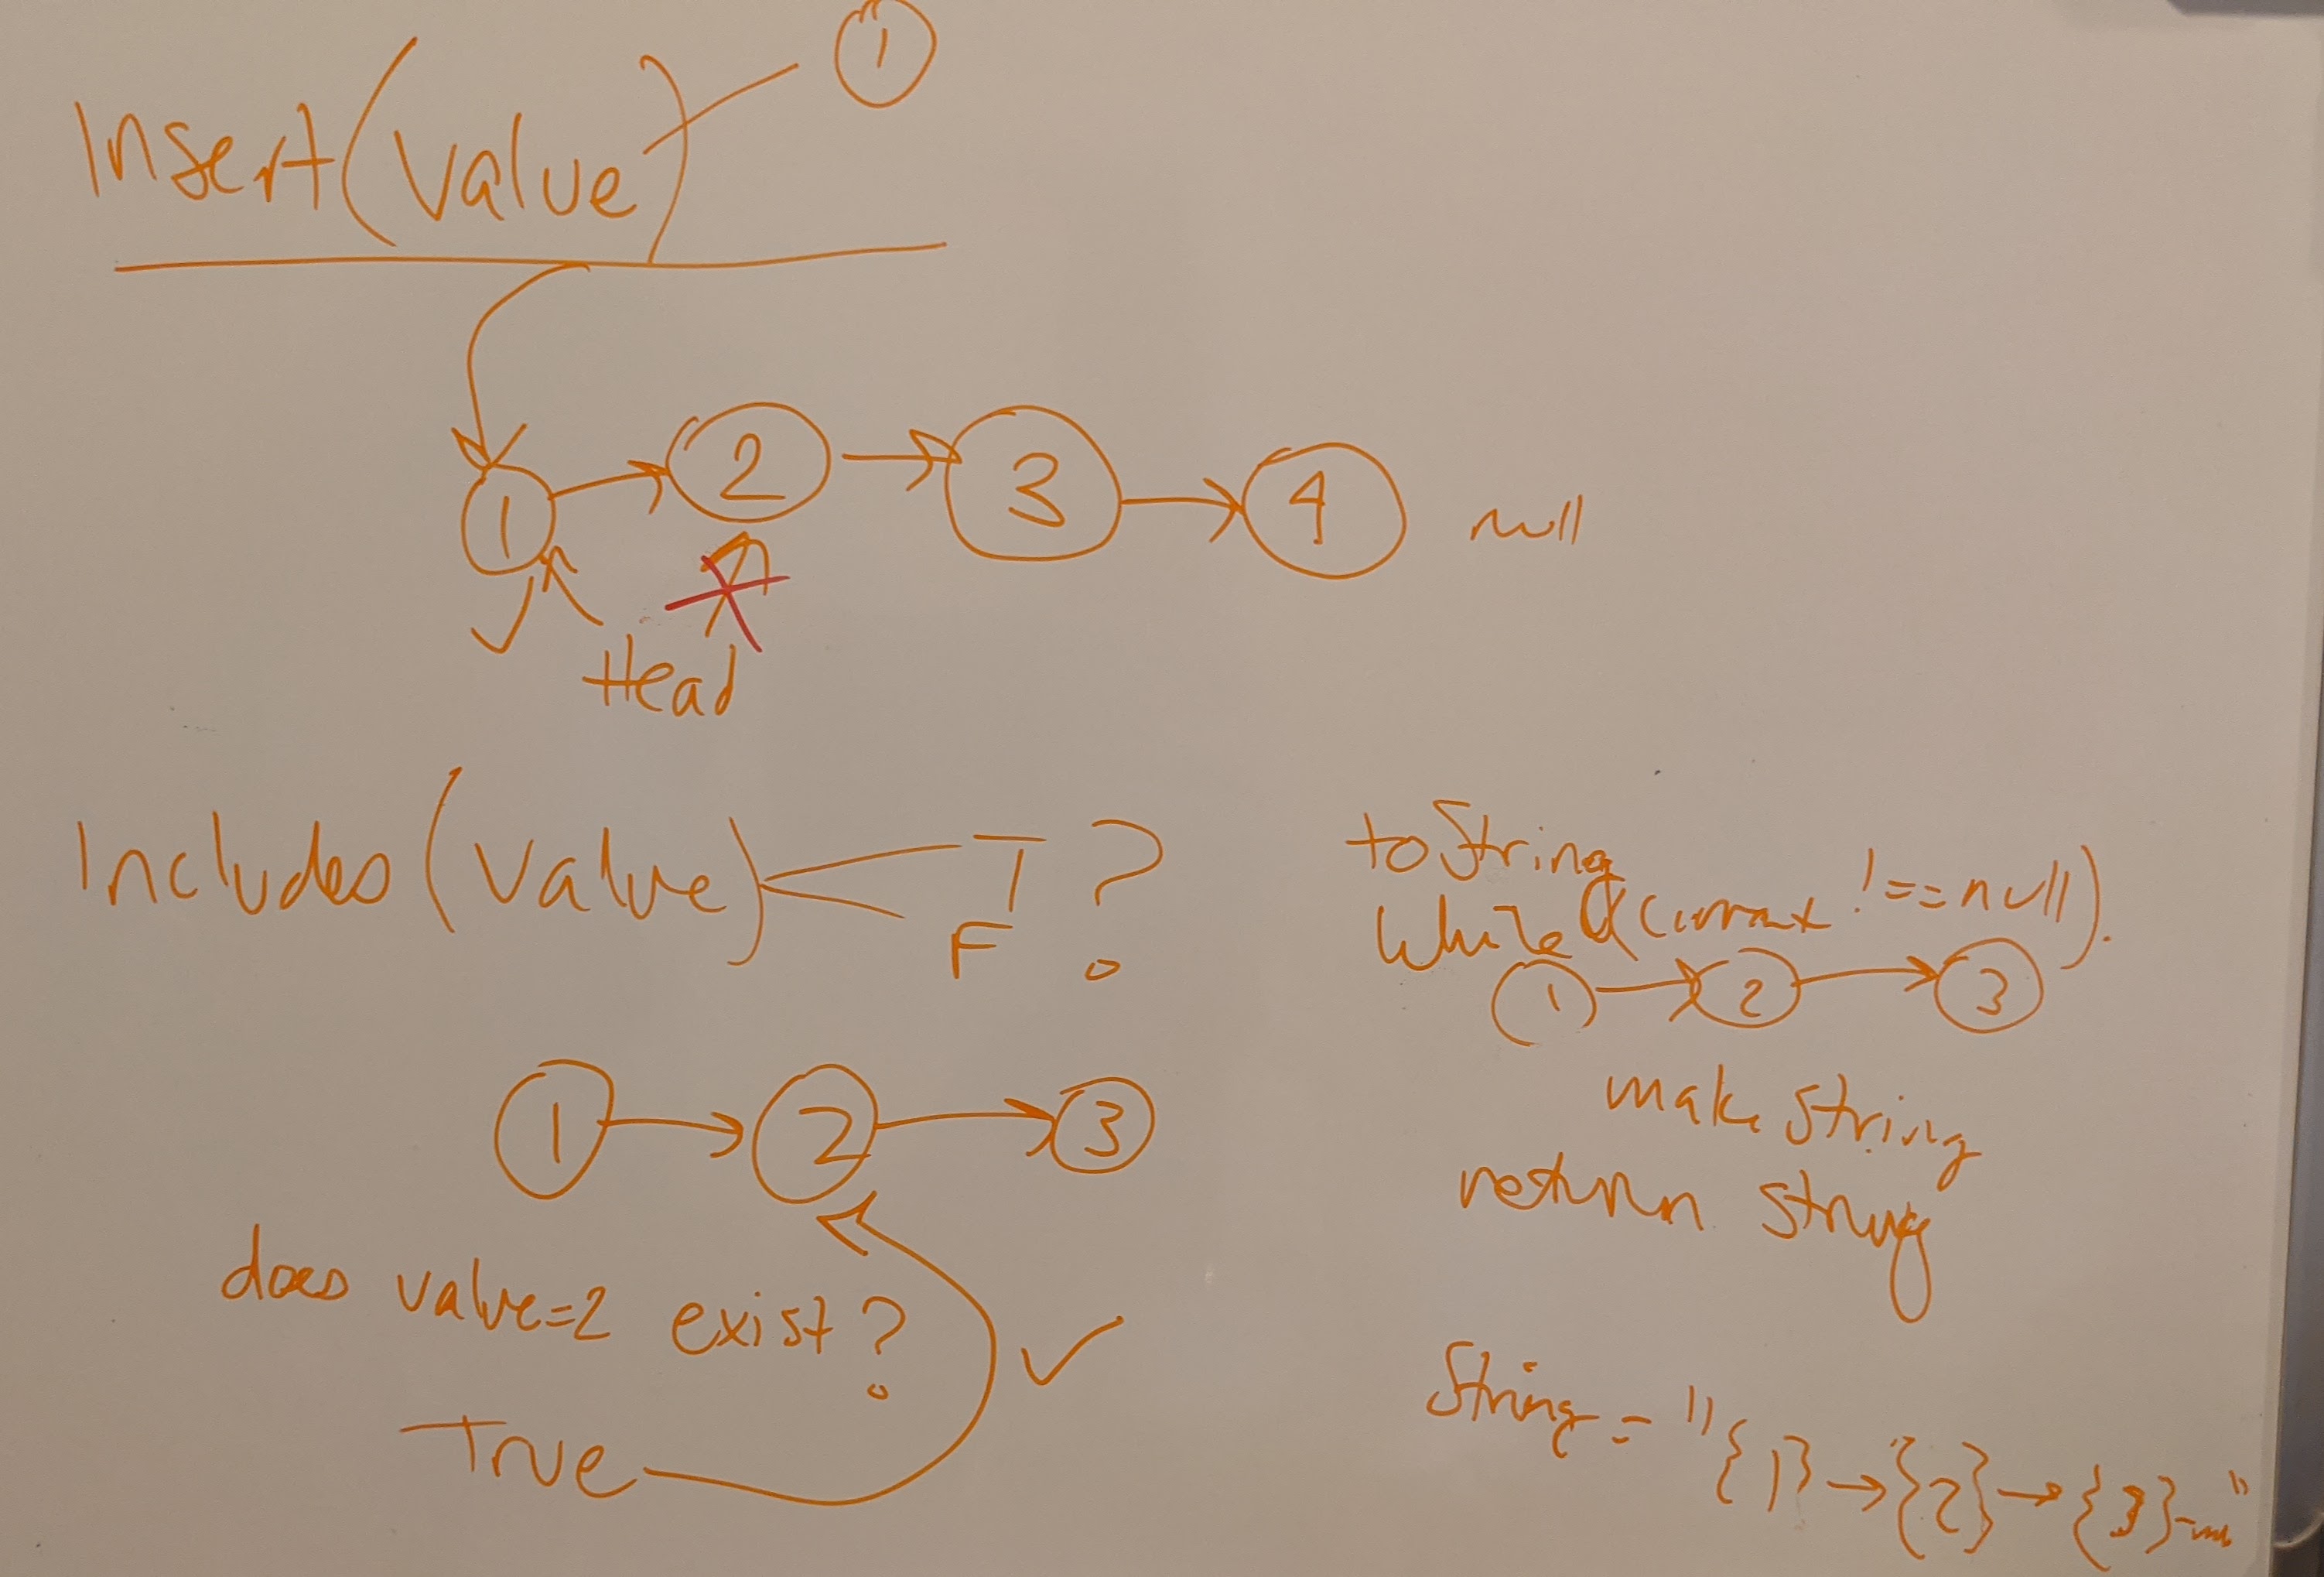 Insert(value)
1
1 2 3 4 null
Head
Includes(value) T ?
F
1 2 3
does value=2 exist?
True
toString
while (current !== null).
1 2 3
make string
return string
String = "{1}→{2}→{3}